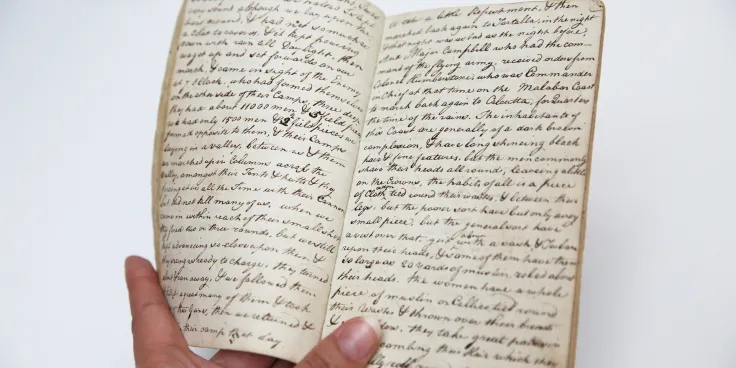 very short although we lay upon the
bare ground, & had not so much as
a Coat to cover us, & it kept pouring
down with rain all Day light, then
we got up and set forwards on our
march, & came in sight of the Enemy
at 7 oClock, who had formed themselves
on the other side of their Camp, three deep
they had about 11000 men & 5 field pieces
we had only 1500 men & 2 field pieces we
formed opposite to them, & their Camps
laying in a valley, between us & them
we marched up in Columns across the
valley, amongst their Tents & hutts & they
firing at us all the Time with their Cannon
but did not kill many of us, when we
came in within reach of their small shot
they fired two or three rounds, but we still
advancing so close upon them &
ready to charge, they turned
ran away, & we followed them
a great many of them & took
their Guns, then we returned &
in their camp that day
to take a little Refreshment, & then
marched back again to Fortalla, in the night
that night was as bad as the night before,
Major Campbell who had the com-
mand of the flying army, received orders from
Colonel Humberstone, who was Commander
in Chief at that time on the Malabar Coast
to march back again to Calicutta, for Quarters
the time of the rains. The inhabitants of
this Coast are generally of a dark brown
complexion, & have long shining black
hair & fine features, but the men commonly
shave their heads all round, leaving a little
on the Crowns, the habit of all is a piece
of Cloth tied round their waists & between their
legs, but the poorer sort have but only a very
small piece, but the general sort have
a vest over that, girt about with a sash & Turban
upon their heads, & some of them have them
so large as 20 yards of muslin rolled about
their heads. the women have a whole
piece of muslin or Callico tied round
their Waist & thrown over their breasts
& they take great pains in
combing their Hair which they
roll